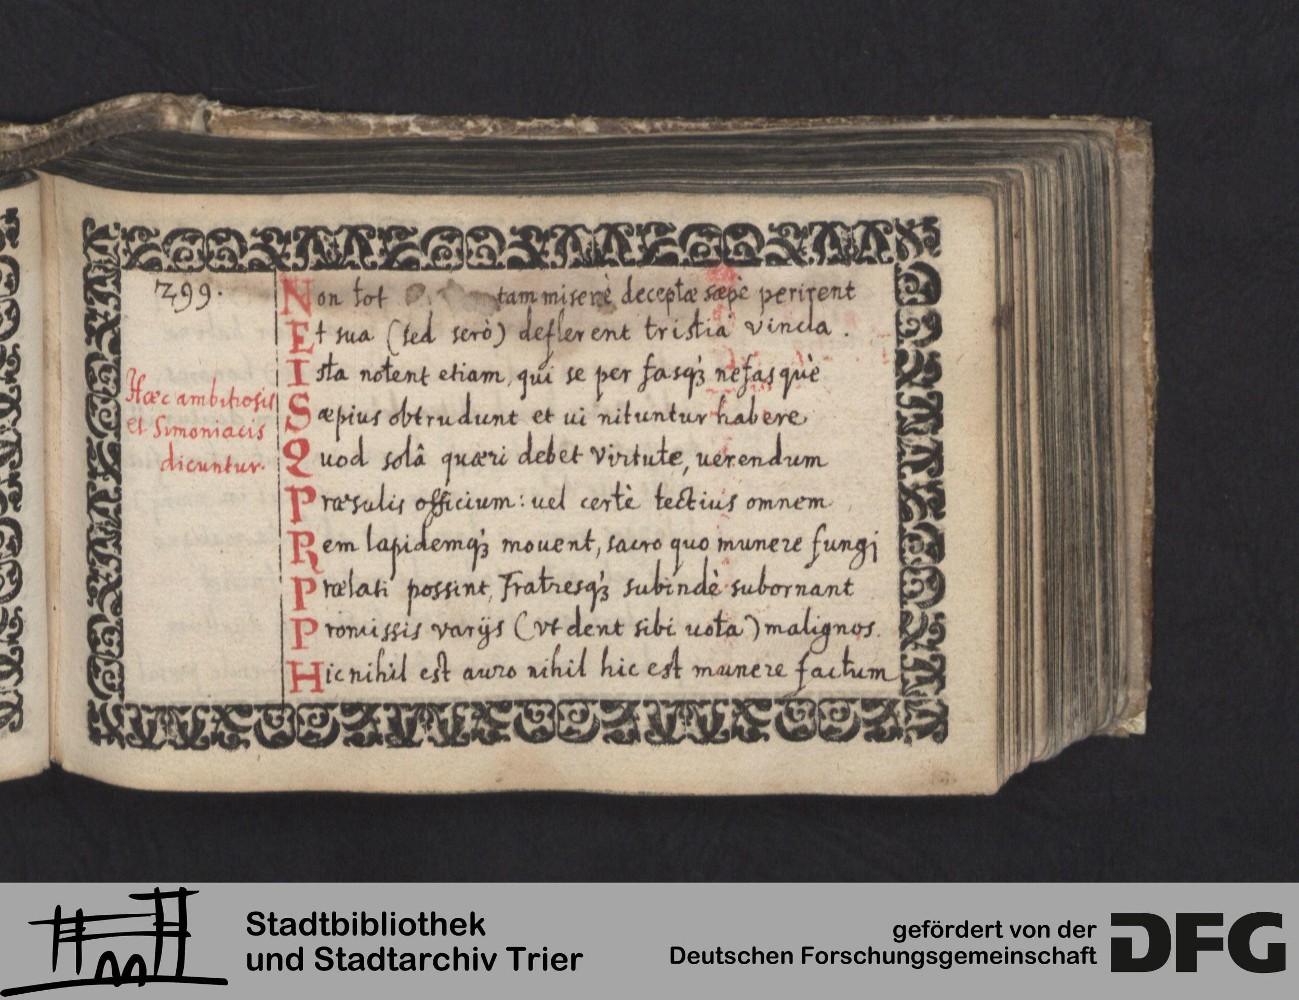 299.
Non tot tam miserè deceptæ sæpè perirent
Et sua (sed serò) deflerent tristia vincla.
Ista notent etiam, qui se per fasq́; nefasquè
Hæc ambitiosis
Sæpius obtrudunt et ui nituntur habere
et Simoniacis
Quod solâ quæri debet virtute, uerendum
dicuntur.
Præsulis officium: uel certè tectius omnem
Rem lapidemq́; mouent, sacro quo munere fungi
Prælati possint, Fratresq́; subindè subornant
Promissis varijs (vt dent sibi uota) malignos.
Hic nihil est auro nihil hic est munere factum
Stadtbibliothek
und Stadtarchiv Trier
gefördert von der
Deutschen Forschungsgemeinschaft
DFG